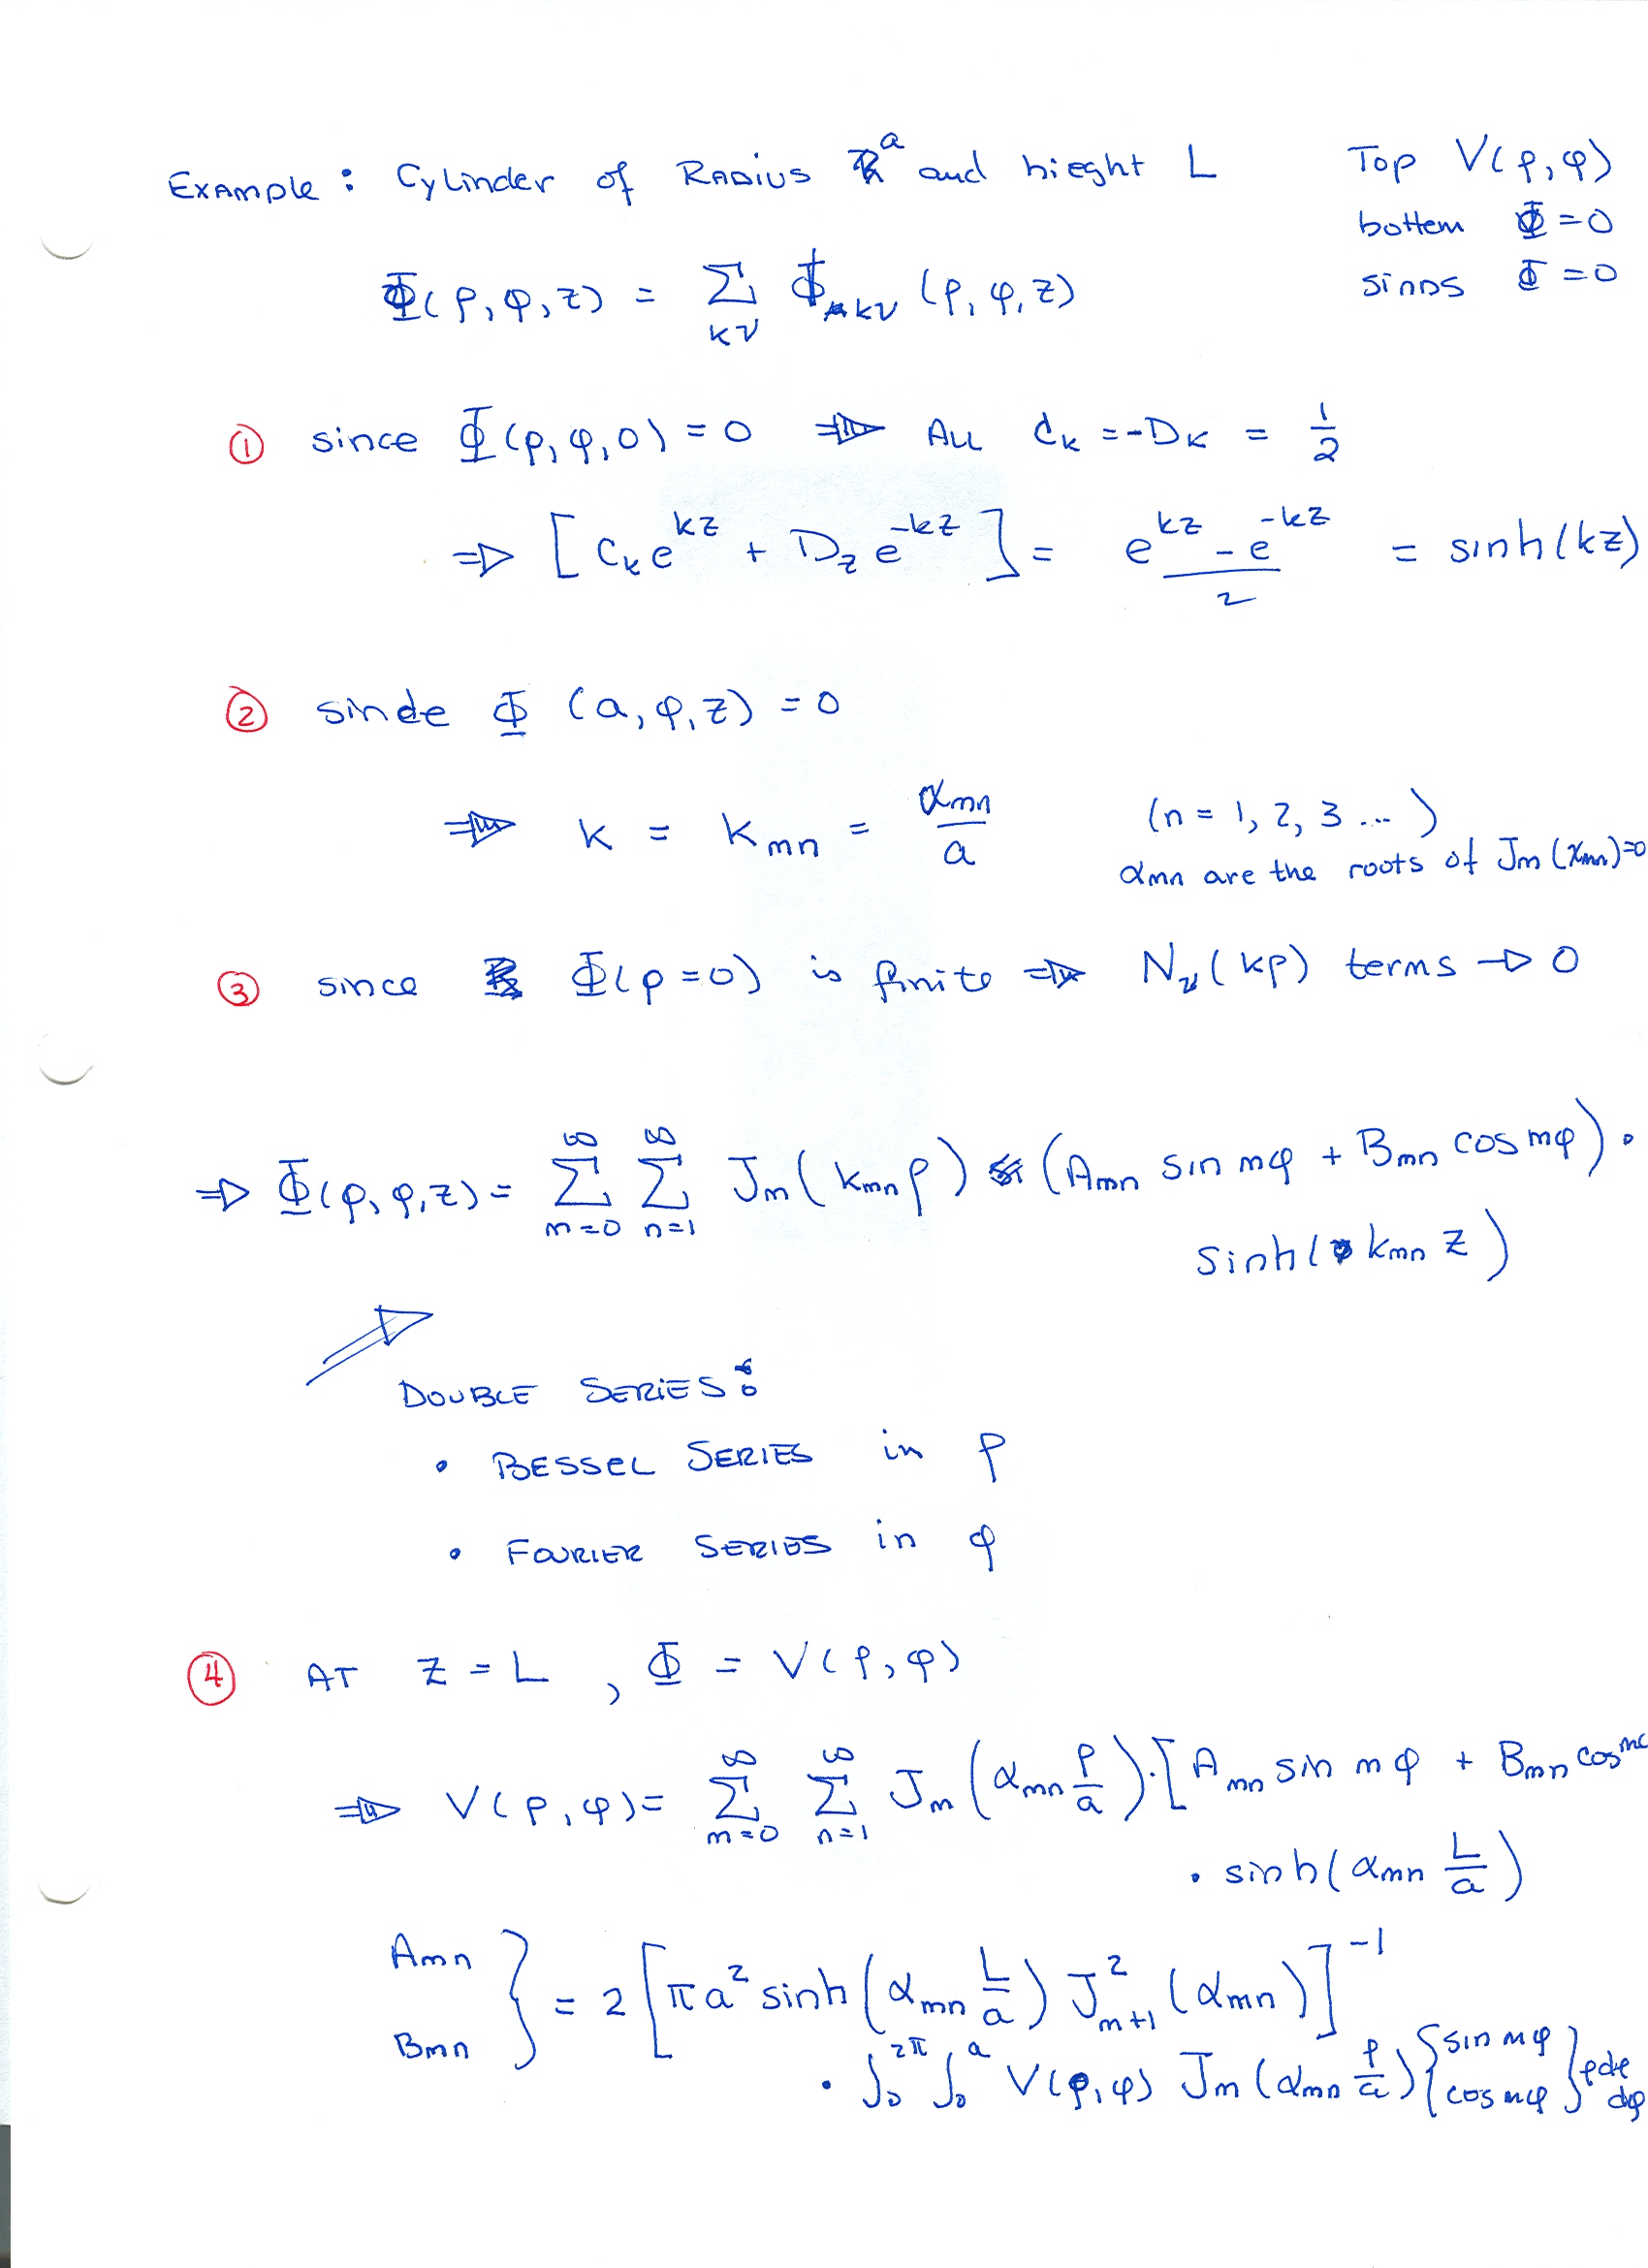 Example: Cylinder of Radius a and hieght L Top V(ρ,φ)
bottem Φ=0
sides Φ=0
Φ(ρ,φ,z) = Σ_{kν} Φ_{kν} (ρ,φ,z)
① since Φ(ρ,φ,0) = 0 ⇒ All C_k = -D_k = 1/2
⇒ [C_k e^{kz} + D_z e^{-kz}] = (e^{kz} - e^{-kz})/2 = sinh(kz)
② sinde Φ (a,φ,z) = 0
⇒ k = k_{mn} = α_{mn}/a (n = 1, 2, 3 ...)
α_{mn} are the roots of J_m(x_{mn})=0
③ since Φ(ρ=0) is finite ⇒ N_ν(kρ) terms → 0
⇒ Φ(ρ,φ,z) = Σ_{m=0}^{∞} Σ_{n=1}^{∞} J_m(k_{mn}ρ) (A_{mn} sin mφ + B_{mn} cos mφ) ·
sinh(k_{mn} z)
DOUBLE SERIES:
• BESSEL SERIES in ρ
• FOURIER SERIES in φ
④ AT z = L, Φ = V(ρ,φ)
⇒ V(ρ,φ) = Σ_{m=0}^{∞} Σ_{n=1}^{∞} J_m(α_{mn} ρ/a)·[A_{mn} sin mφ + B_{mn} cos
· sinh(α_{mn} L/a)
A_{mn}
B_{mn} } = 2[πa² sinh(α_{mn} L/a) J²_{m+1}(α_{mn})]^{-1}
· ∫_0^{2π} ∫_0^a V(ρ,φ) J_m(α_{mn} ρ/a) {sin mφ
cos mφ} ρdρ dφ